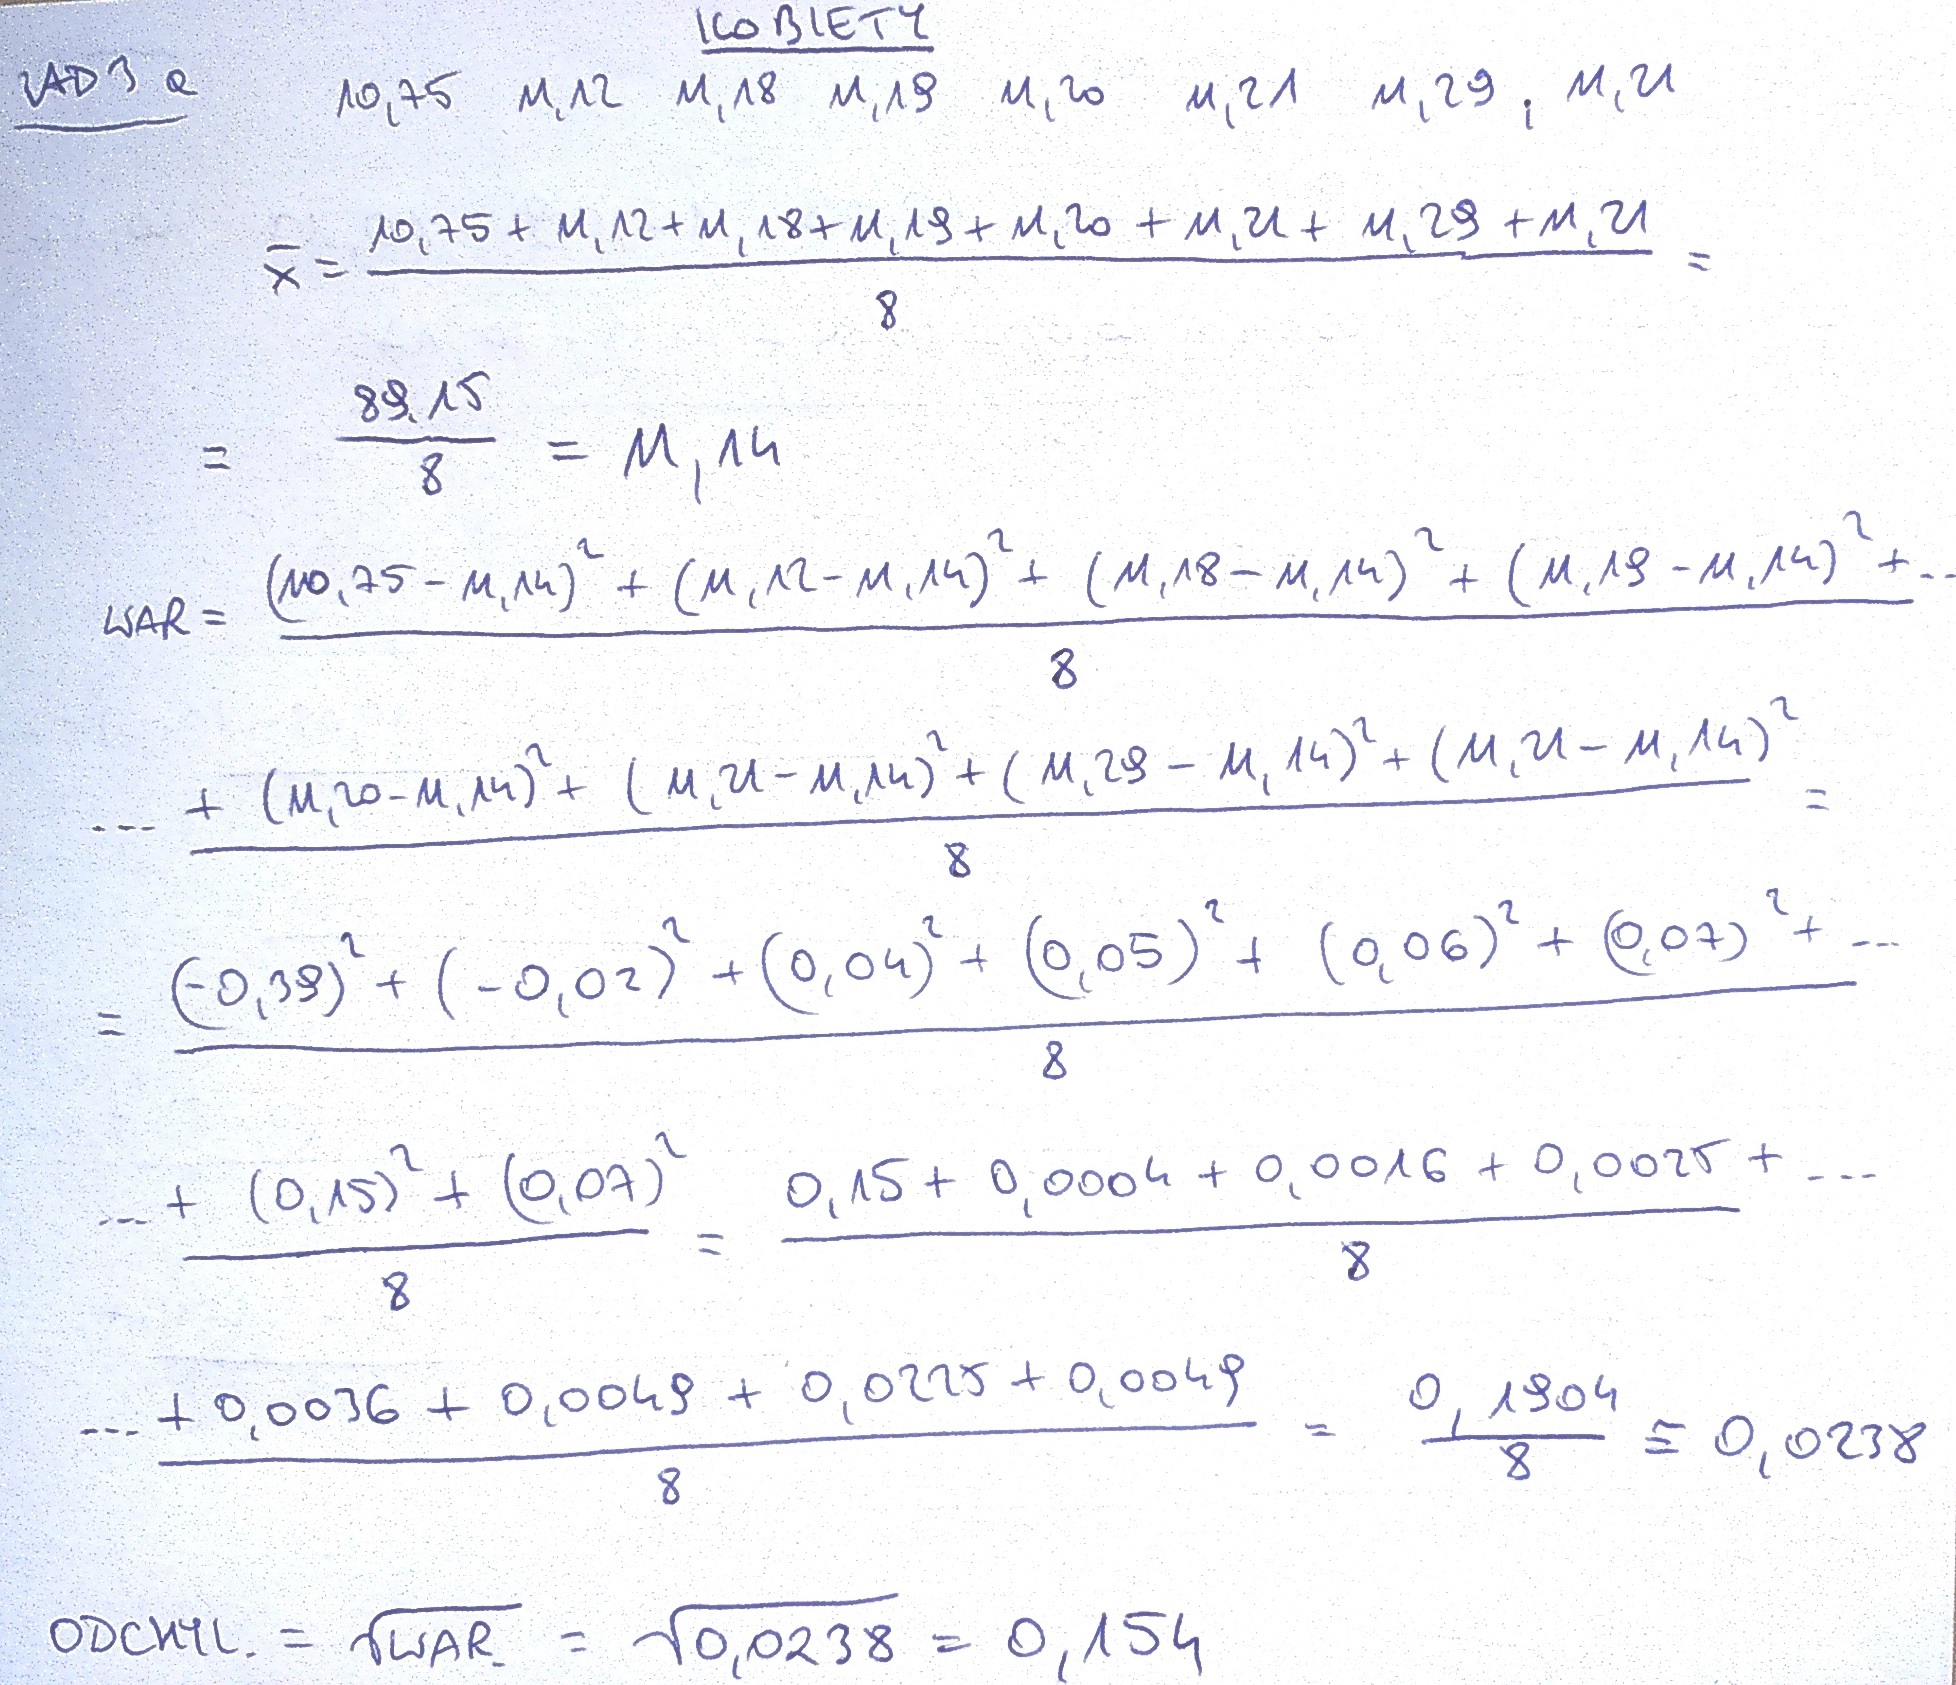 KOBIETY
ZAD 3 a 10,75 11,12 11,18 11,19 11,20 11,21 11,29, 11,21
x̄ = (10,75 + 11,12 + 11,18 + 11,19 + 11,20 + 11,21 + 11,29 + 11,21) / 8 =
= 89,15 / 8 = 11,14
WAR = ((10,75 - 11,14)² + (11,12 - 11,14)² + (11,18 - 11,14)² + (11,19 - 11,14)² + ...) / 8
... + (11,20 - 11,14)² + (11,21 - 11,14)² + (11,29 - 11,14)² + (11,21 - 11,14)² / 8 =
= ((-0,39)² + (-0,02)² + (0,04)² + (0,05)² + (0,06)² + (0,07)² + ...) / 8
... + (0,15)² + (0,07)² / 8 = (0,15 + 0,0004 + 0,0016 + 0,0025 + ...) / 8
... + 0,0036 + 0,0049 + 0,0225 + 0,0049 / 8 = 0,1904 / 8 = 0,0238
ODCHYL. = √WAR. = √0,0238 = 0,154